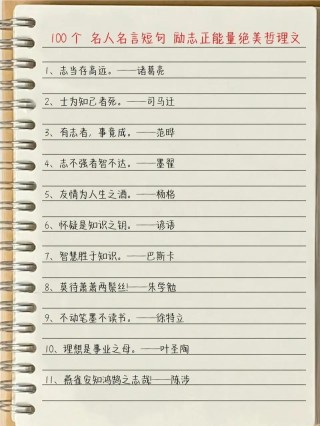 100个 名人名言短句 励志正能量绝美哲理文
1、志当存高远。——诸葛亮
2、士为知己者死。——司马迁
3、有志者，事竟成。——范晔
4、志不强者智不达。——墨翟
5、友情为人生之酒。——杨格
6、怀疑是知识之钥。——谚语
7、智慧胜于知识。——巴斯卡
8、莫待萧萧两鬓丝!——朱学勉
9、不动笔墨不读书。——徐特立
10、理想是事业之母。——叶圣陶
11、燕雀安知鸿鹄之志哉!——陈涉